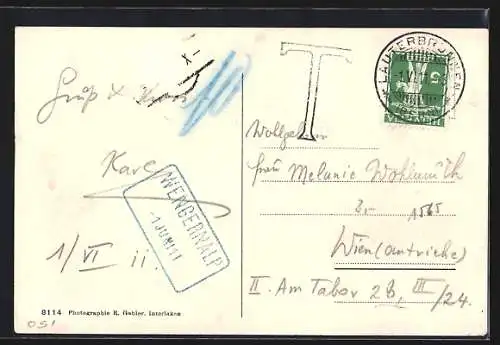 Gruß & Kuss
Karl
1/VI 11.
WENGERNALP
-1 JUNI 11
8114 Photographie R. Gabler. Interlaken
051
T
LAUTERBRUNNEN
-1.VI.11
5
HELVETIA
Wohlgeboren
Frau Melanie Wohlmuth
1565
Wien (Autriche)
II. Am Tabor 2B, III/24.